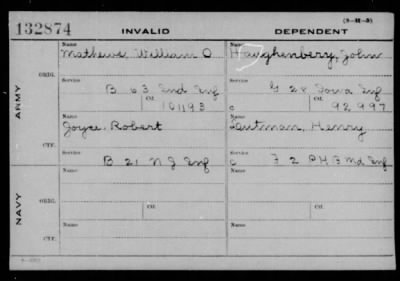 (3-M-5)
132874 INVALID DEPENDENT
Name Name
Mathews, William O Haughenbery, John
ORIG. Service Service
B 63 Ind Inf G 28 Iowa Inf
Ctf. Ctf.
101193 C 92997
ARMY
Name Name
Joyce, Robert Lutman, Henry
CTF. Service Service
B 21 N J Inf C F 2 P H B Md Inf
Name Name
ORIG. Service Service
Ctf. Ctf.
NAVY
Name Name
CTF.